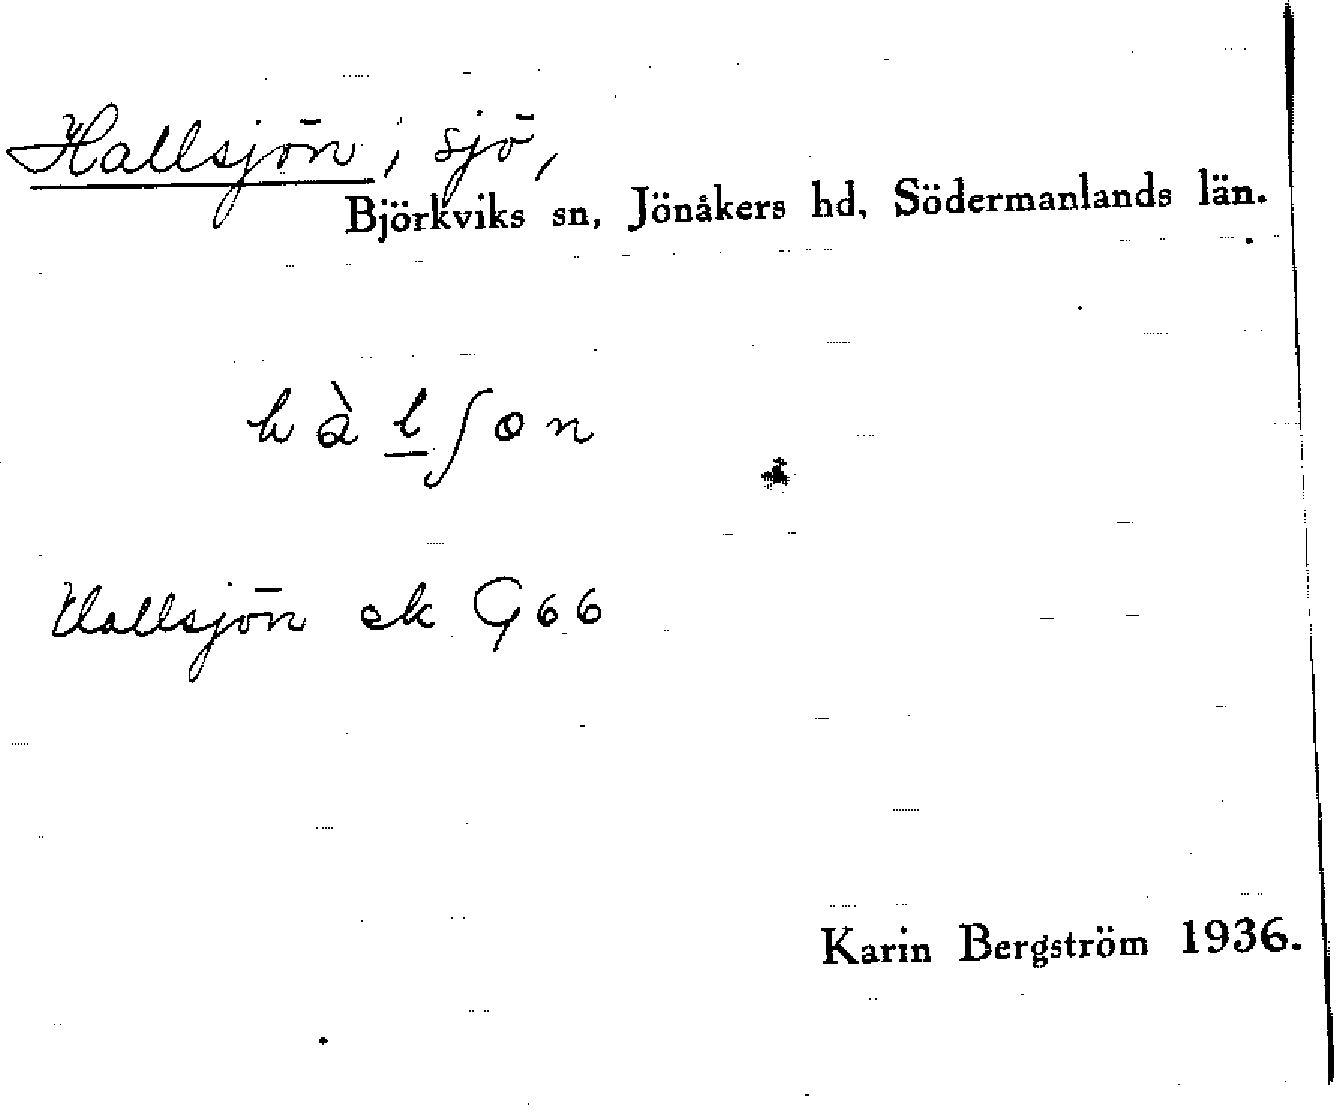 Hallsjön, sjö,
Björkviks sn, Jönåkers hd, Södermanlands län.
hàlʃɵn
Hallsjön ek G66
Karin Bergström 1936.